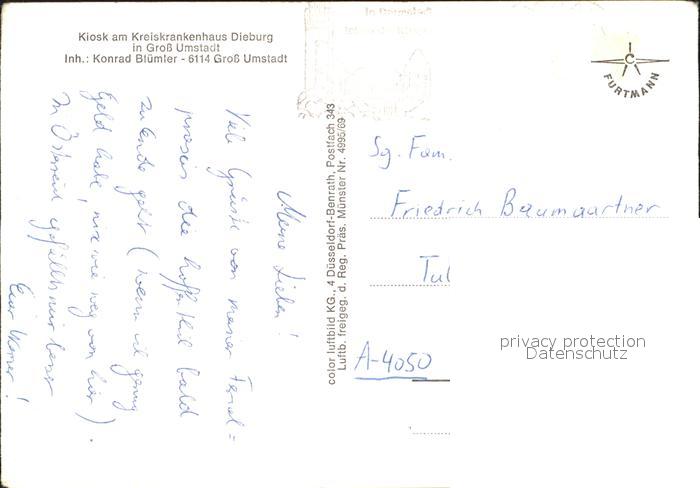 Kiosk am Kreiskrankenhaus Dieburg
in Groß Umstadt
Inh.: Konrad Blümler - 6114 Groß Umstadt
Meine Lieben!
Viele Grüße von meiner Ferial=
praxis die hoffentlich bald
zu Ende geht (wenn ich genug
Geld habe, nix wie weg von hier).
In Österreich gefällt's mir besser
Euer Werner!
color luftbild KG., 4 Düsseldorf-Benrath, Postfach 343
Luftb. freigeg. d. Reg. Präs. Münster Nr. 4995/69
C
FURTMANN
Sg. Fam.
Friedrich Baumgartner
Tul
A-4050
privacy protection
Datenschutz